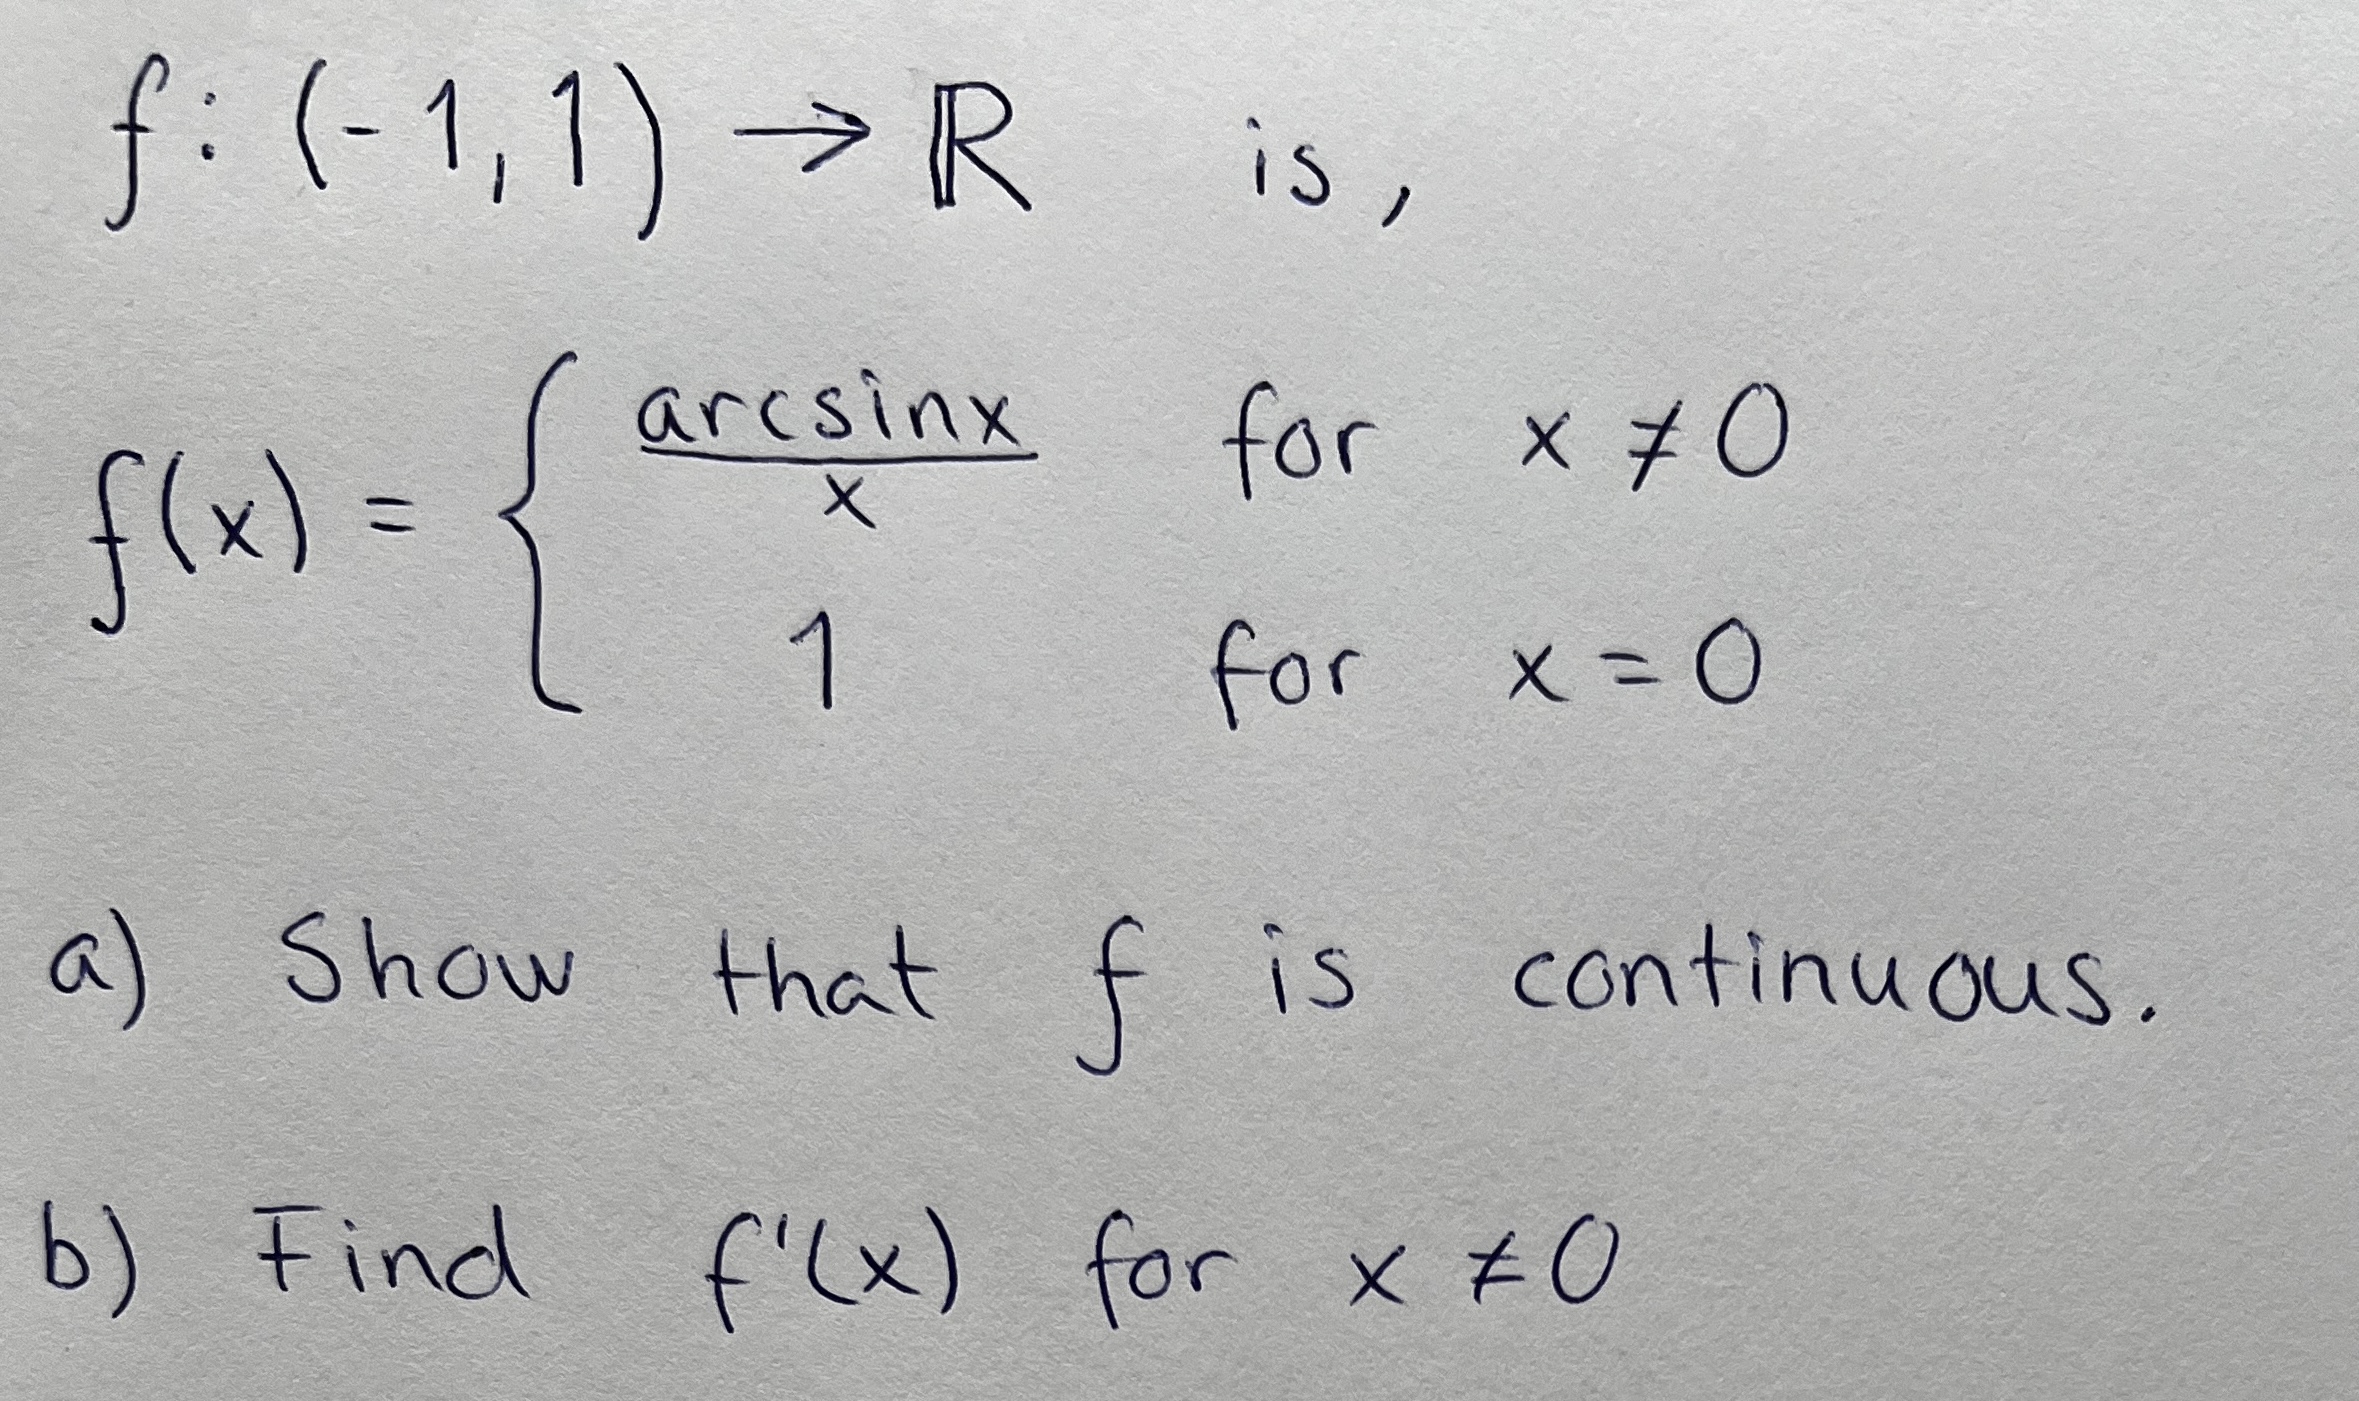 f: (-1, 1) → ℝ is,
f(x) = { arcsinx / x for x ≠ 0
1 for x = 0
a) Show that f is continuous.
b) Find f'(x) for x ≠ 0